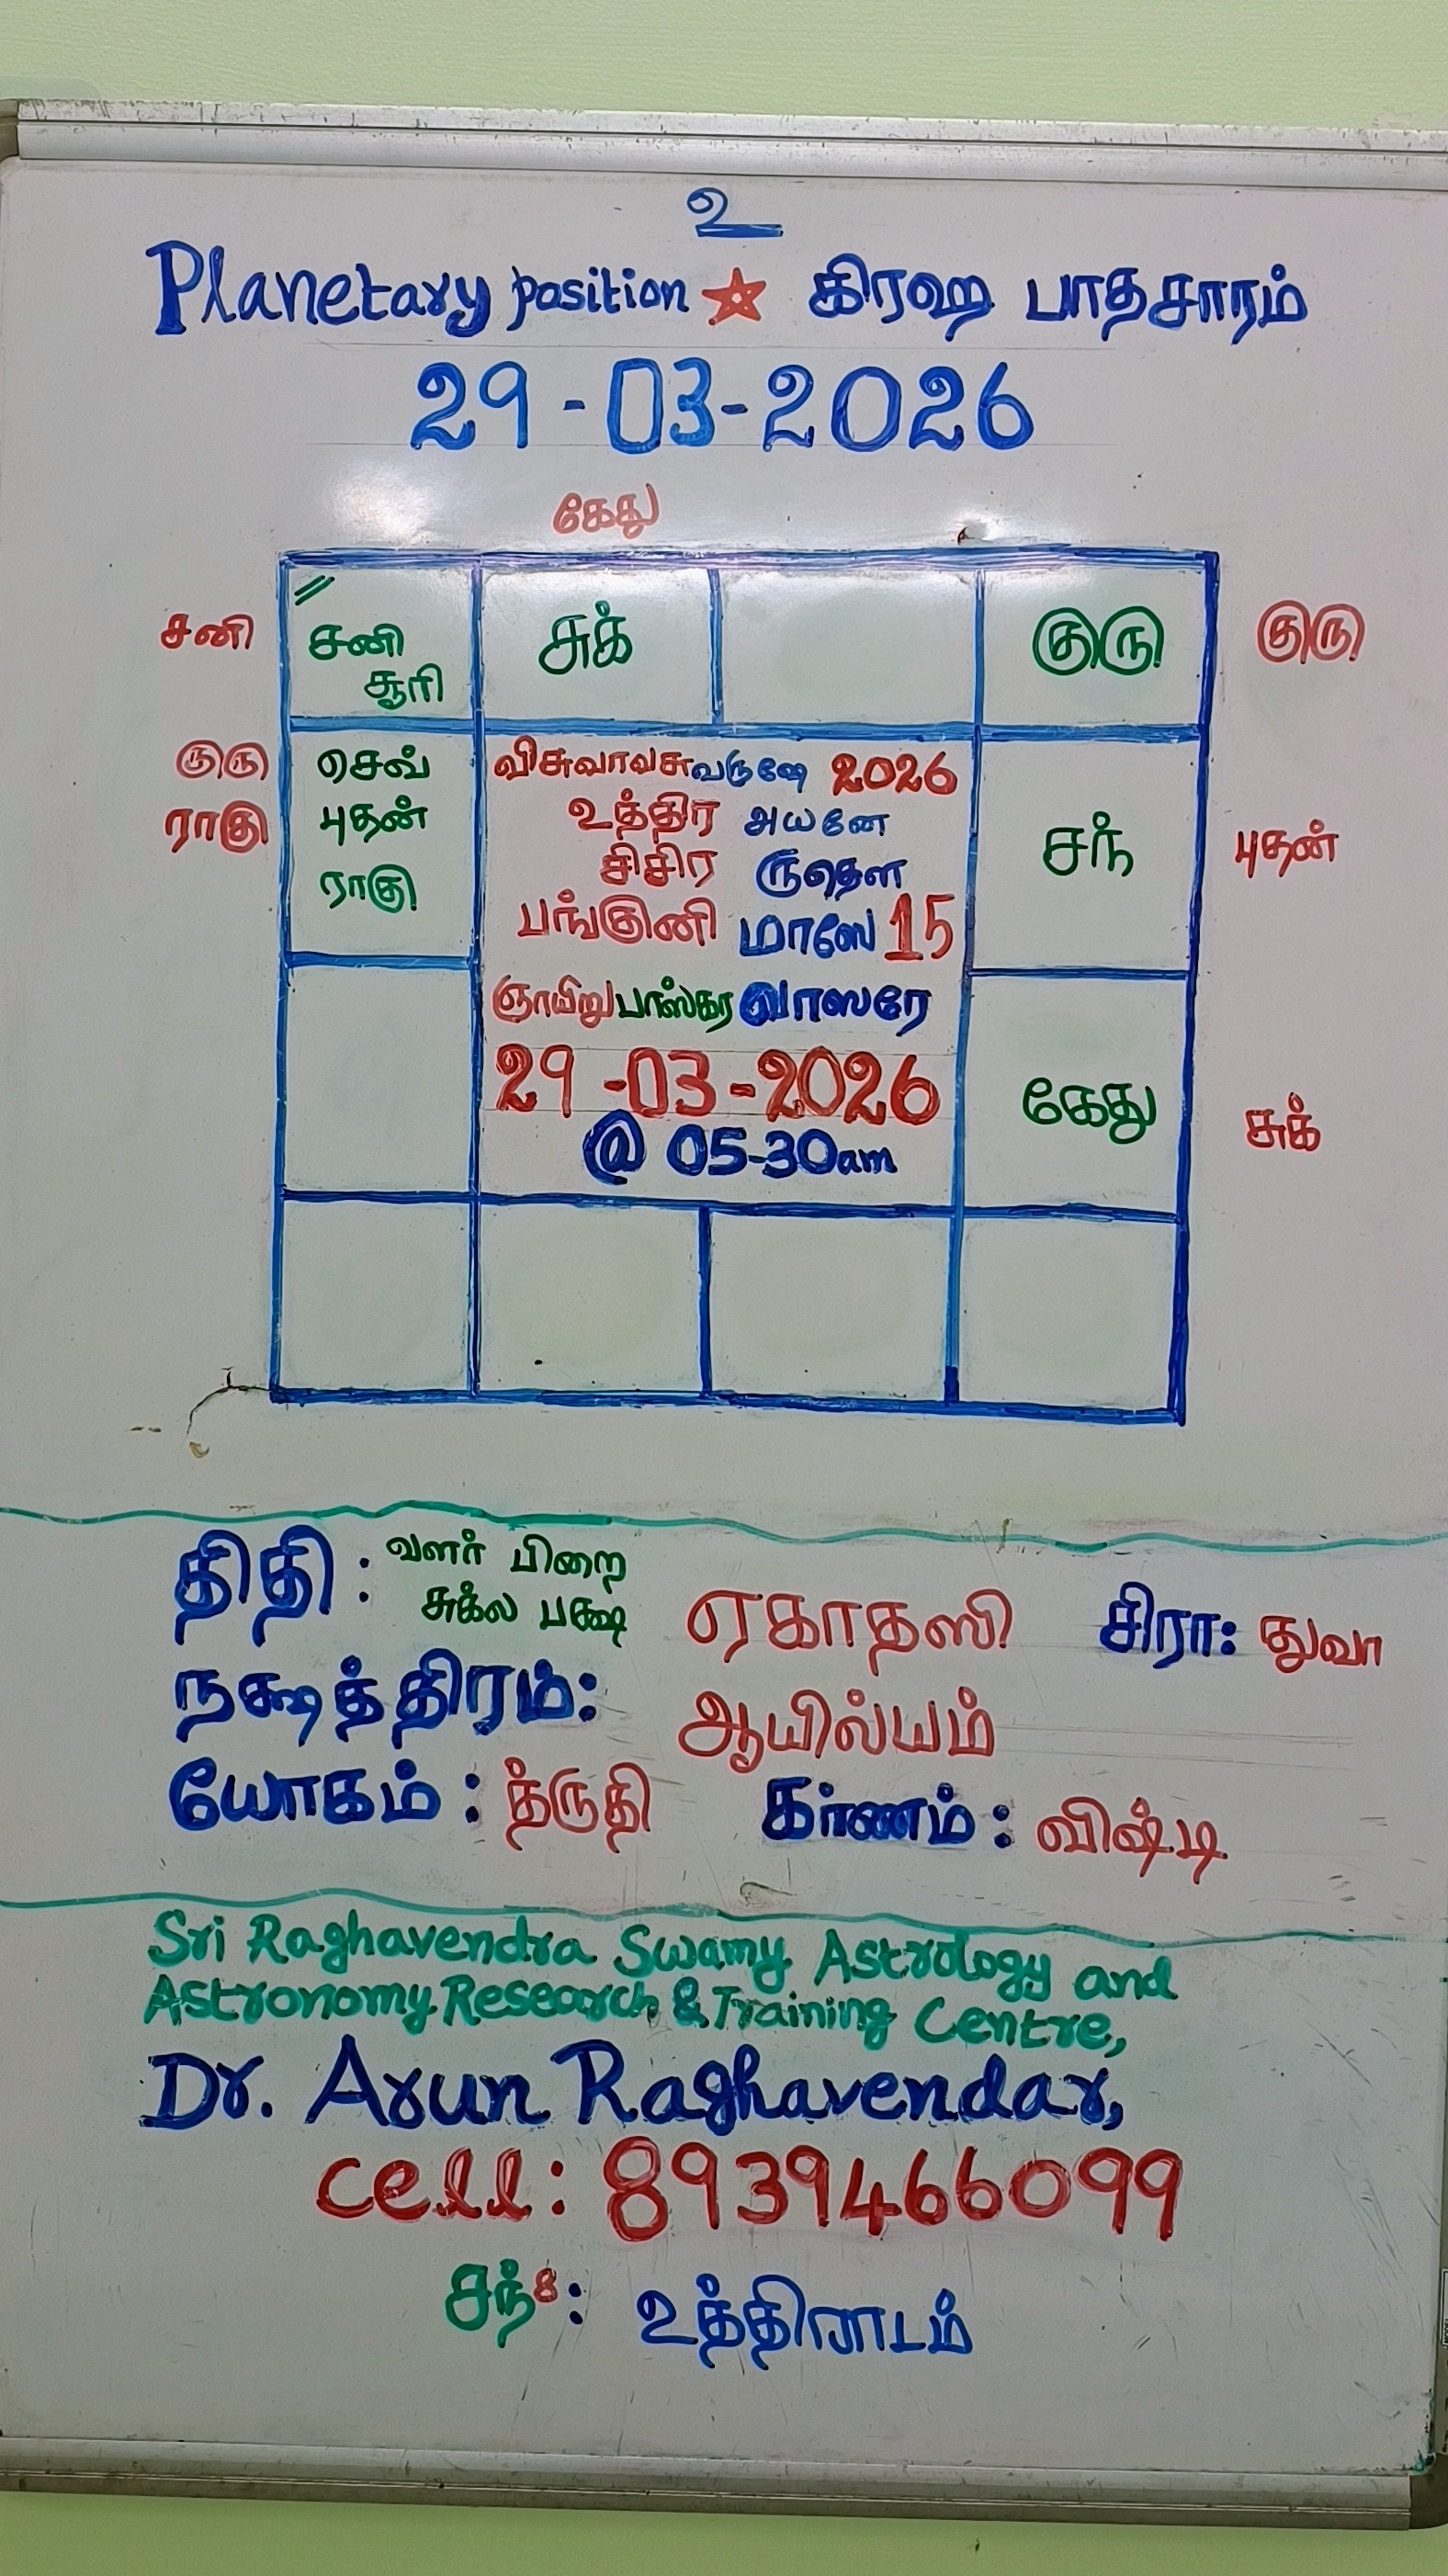 உ
Planetary position ☆ கிரஹ பாதசாரம்
29-03-2026
கேது
சனி சனி சுக் குரு குரு
சூரி
குரு செவ் விசுவாவசு வருஷே 2026
ராகு புதன் உத்திர அயனே சந் புதன்
ராகு சிசிர ருதௌ
பங்குனி மாஸே 15
ஞாயிறு பாஸ்கர வாஸரே
29-03-2026 கேது சுக்
@ 05-30am
திதி : வளர் பிறை
சுக்ல பக்ஷ ஏகாதஸி சிரா: துவா
நக்ஷத்திரம்: ஆயில்யம்
யோகம் : த்ருதி கர்ணம் : விஷ்டி
Sri Raghavendra Swamy Astrology and
Astronomy Research & Training Centre,
Dr. Arun Raghavendar,
cell: 8939466099
சந்8: உத்திராடம்